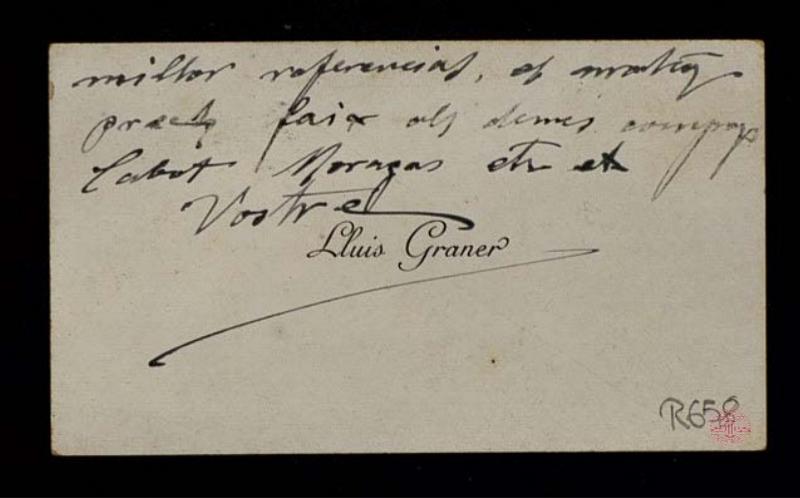 millor referencias, el mateix
prech faix als demes companys
Cabot Moragas etc etc
Vostre
Lluis Graner
R658